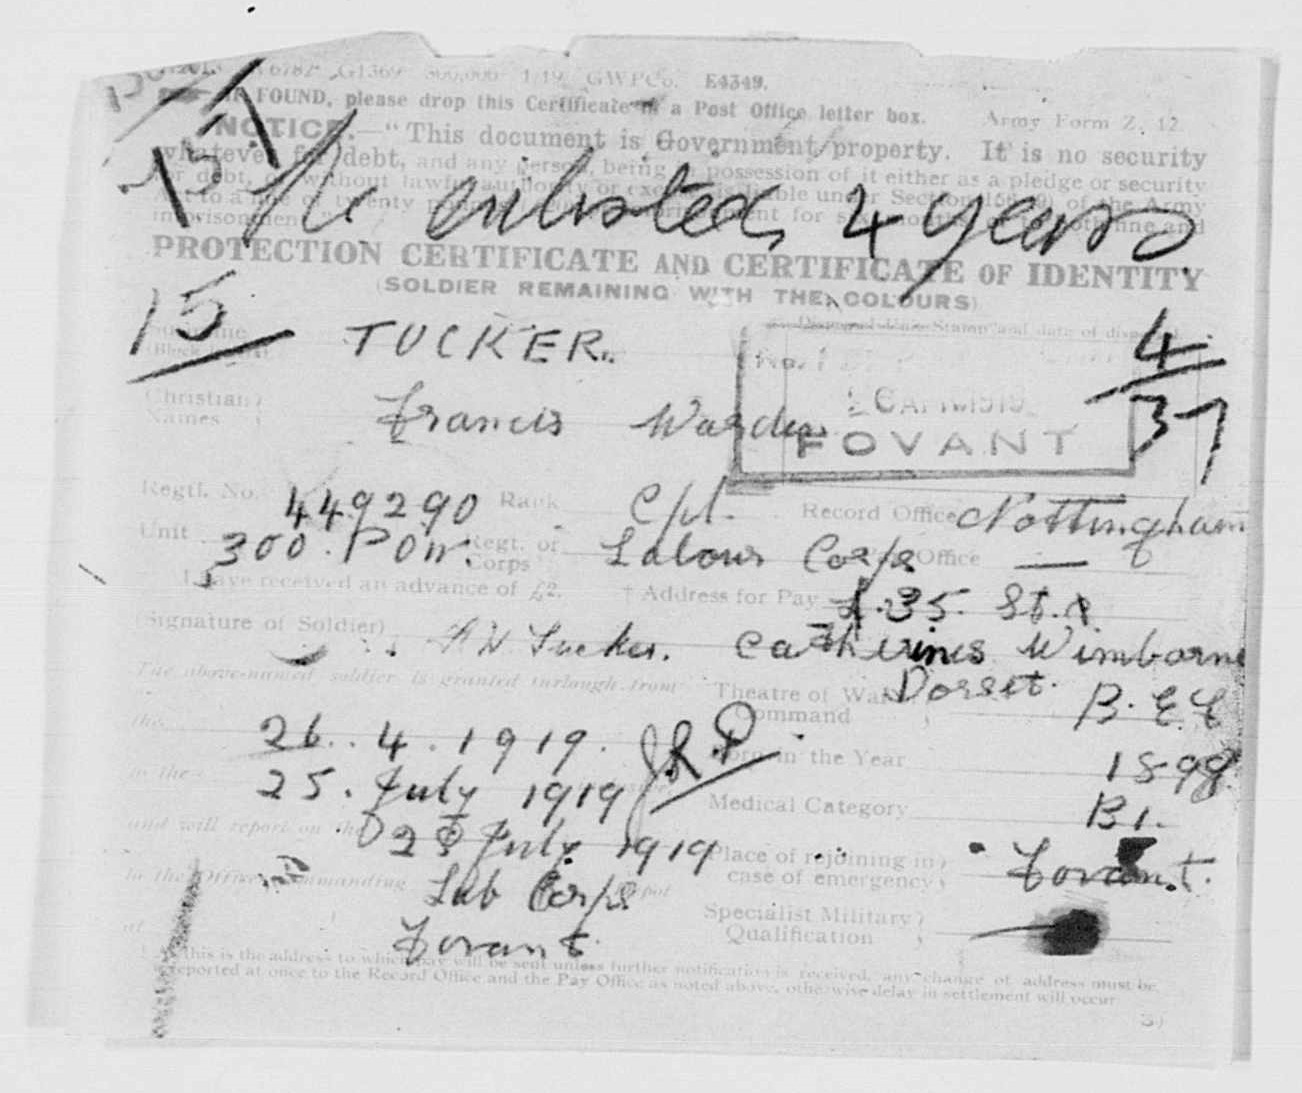 W6782 G1369 500,000 1/19 GWPCo. E4349.
IF FOUND, please drop this Certificate in a Post Office letter box. Army Form Z. 12
NOTICE.—"This document is Government property. It is no security
whatever for debt, and any person being in possession of it either as a pledge or security
for debt, or without lawful authority or excuse is liable under Section 156 (9) of the Army
Act to a fine of twenty pounds imprisonment for six months or to both fine and
imprisonment."
enlisted 4 years
PROTECTION CERTIFICATE AND CERTIFICATE OF IDENTITY
(SOLDIER REMAINING WITH THE COLOURS)
15
Dispersal Unit Stamp and date of dispersal
Surname
(Block letters) TUCKER.
4/37
No. 1
1919
FOVANT
Christian Names Francis
Regtl. No. 449290 Rank Cpl. Record Office Nottingham
Unit 300. POW. Regt. or Corps Labour Corps Office —
I have received an advance of £2. † Address for Pay 35. St.
(Signature of Soldier) F W Tucker. Catherines Wimborne
Dorset.
The above-named soldier is granted furlough from
Theatre of War or Command B.E.F
this 26. 4. 1919. Born in the Year 1899
to the 25. July 1919 Medical Category B1.
and will report on the July 1919 Place of rejoining in case of emergency Fovant.
to the Officer Commanding Lab Corps Depot
Specialist Military Qualification —
at Fovant
† this is the address to which pay will be sent unless further notification is received, any change of address must be
reported at once to the Record Office and the Pay Office as noted above, otherwise delay in settlement will occur